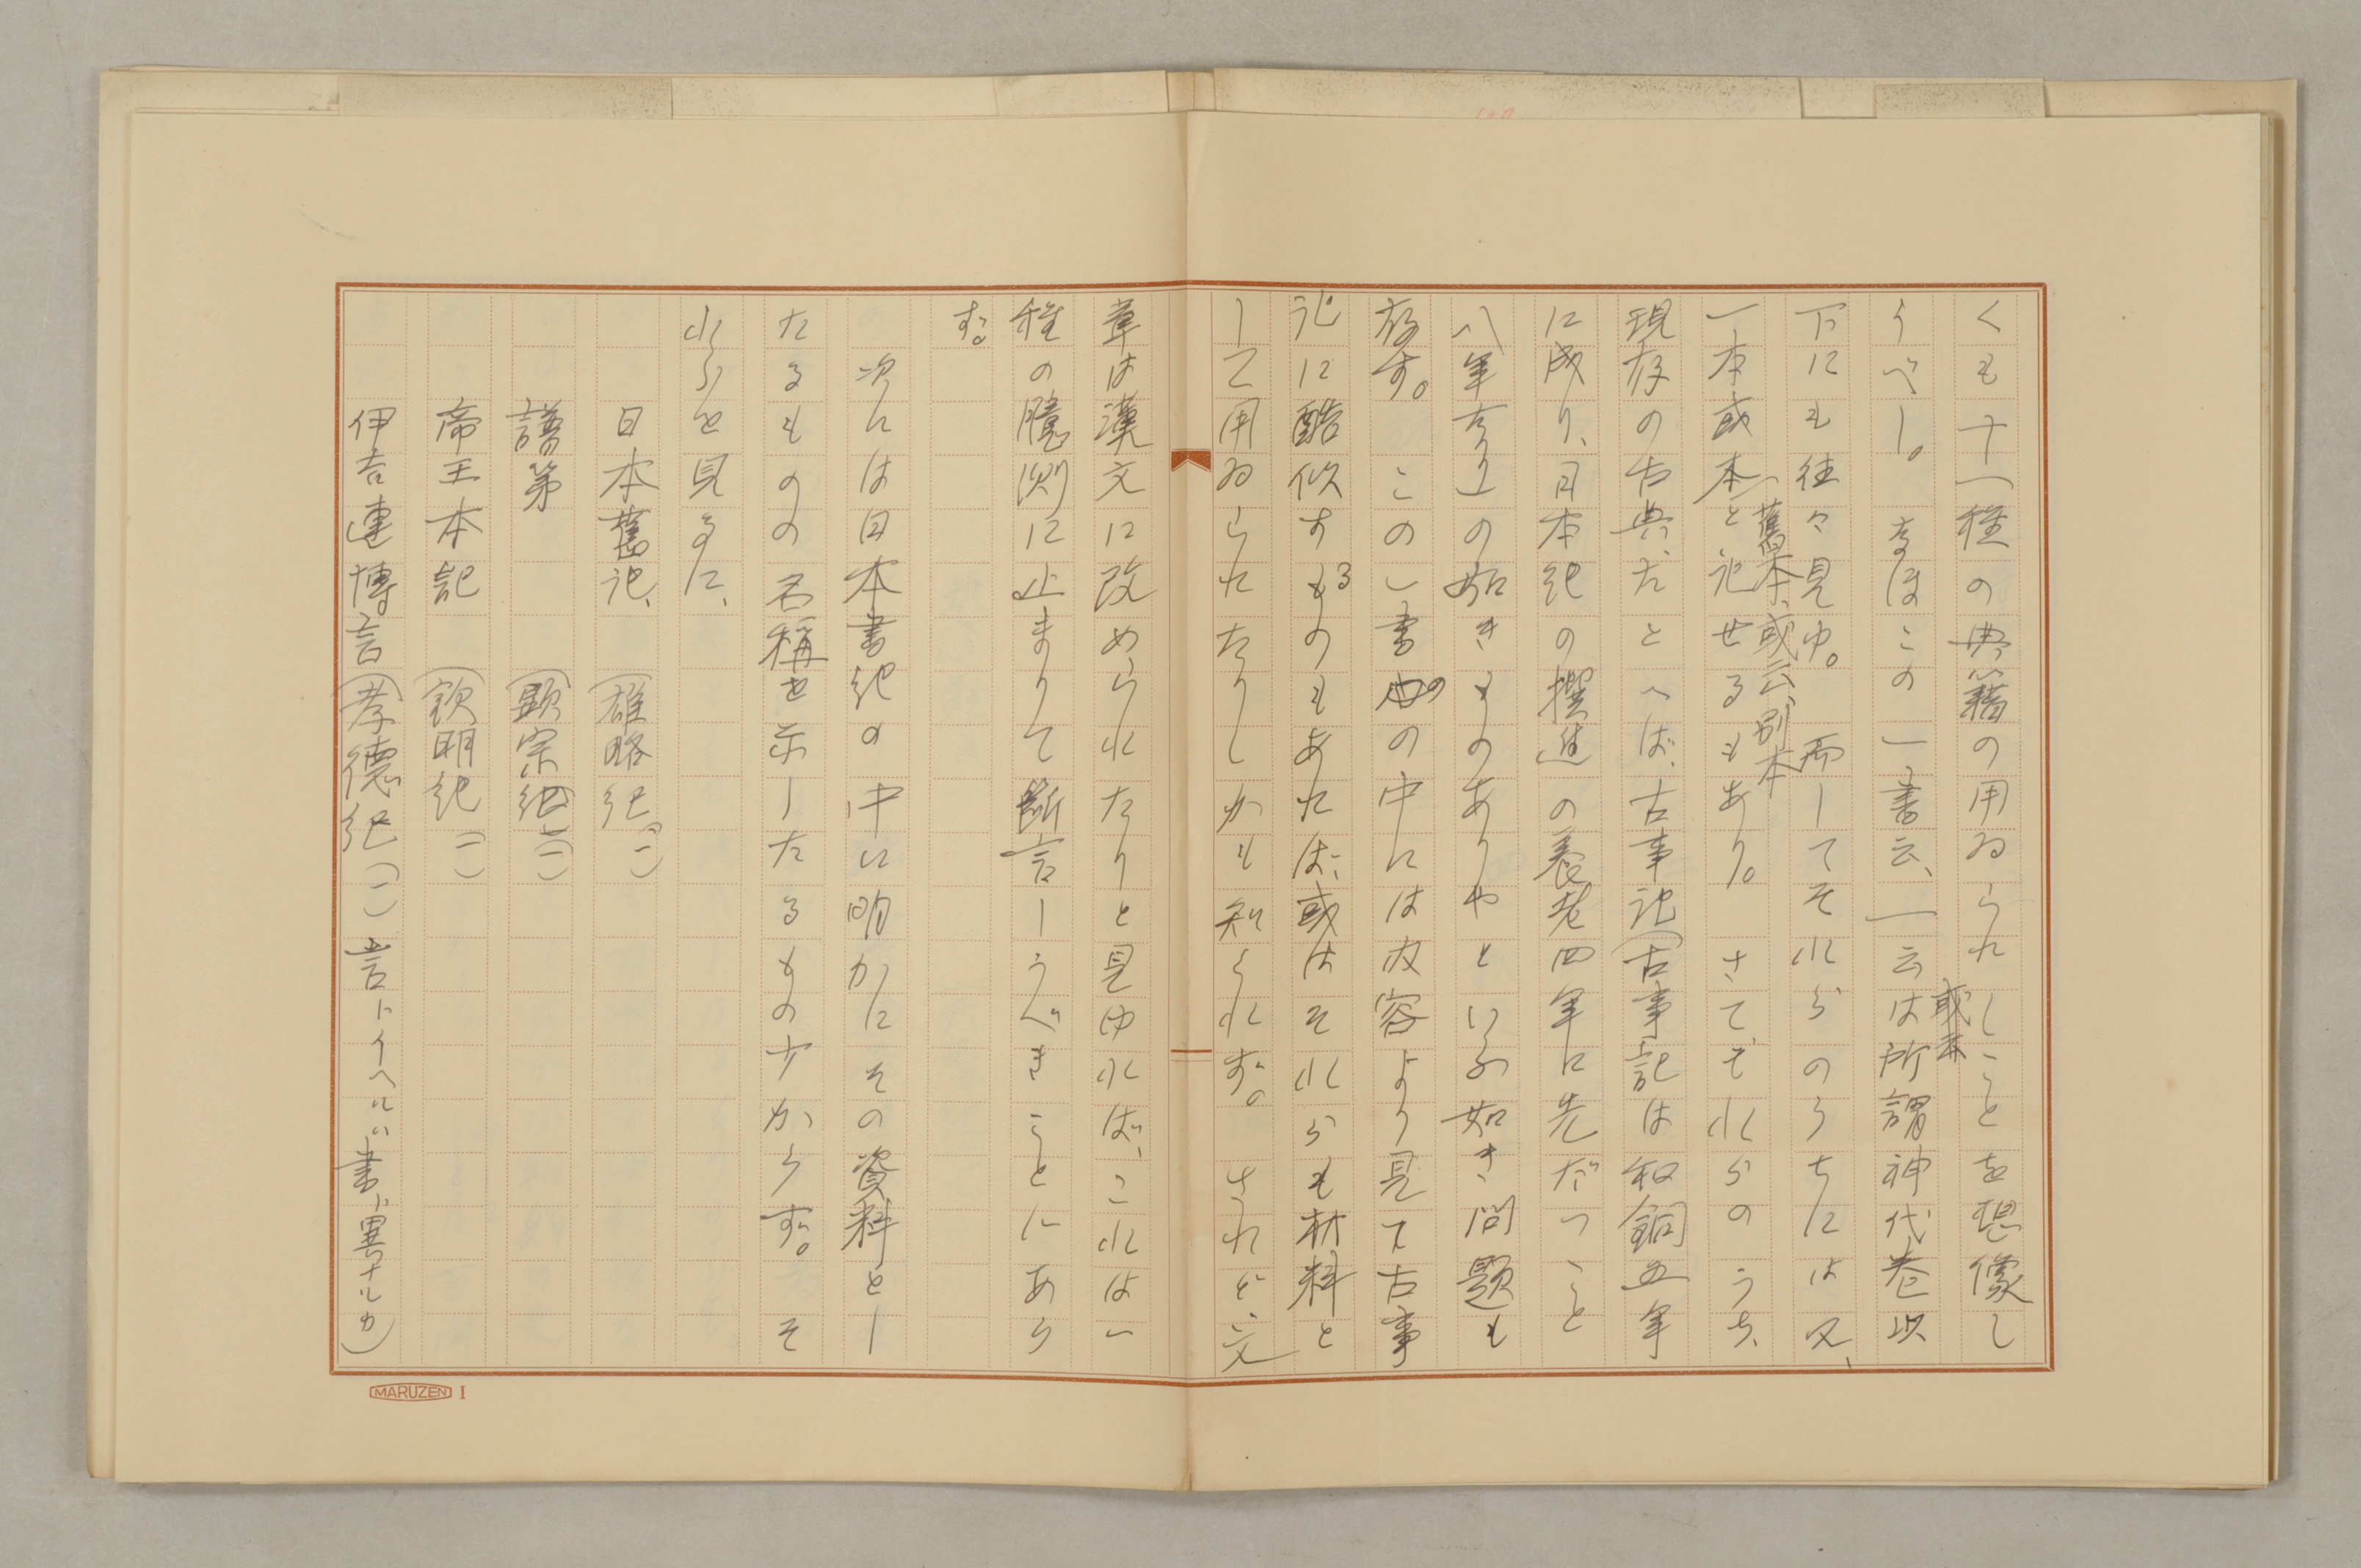 くも十一種の典籍の用ゐられしことを想像し
うべし。なほこの一書云、一云
或本
は所謂神代巻以
下にも往々見ゆ。而してそれらのうちには又、
一本或本
舊本、或云、別本
と記せるもあり。さてそれらのうち、
現存の古典たとへば、古事記(古事記は和銅五年
に成り、日本紀の撰進の養老四年に先だつこと
八年余り)の如きものありやといふ如き問題も
存す。この一書の中には内容より見て古事
記に酷似するものもあれば、或はそれらも材料と
して用ゐられたりしかも知られず。されど、文
章は漢文に改められたりと見ゆれば、これは一
種の臆測に止まりて断言しうべきことにあら
ず。
次には日本書紀の中に明かにその資料とし
たるものの名稱を示したるもの少からず。そ
れらを見るに、
日本舊記、(雄略紀(一)
譜第(顯宗紀(一)
帝王本記(欽明紀(一)
伊吉連博言(孝德紀(一)言トイヘルハ書ト異ナルカ)
MARUZEN I